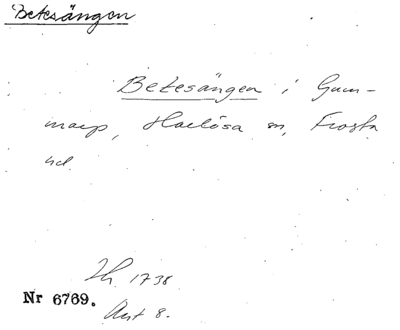 Betesängen
Betesängen i Gum-
marp, Harlösa sn, Frosta
hd.
Lh. 1738
Nr 6769.
Akt 8.